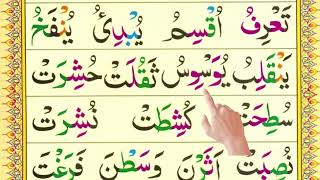 تَعْرِفُ اُقْسِمُ يُبْدِئُ يُنْفَخُ
يَنْقَلِبُ يُوَسْوِسُ ثَقُلَتْ حُشِرَتْ
سُطِحَتْ كُشِطَتْ نُشِرَتْ
نُصِبَتْ اَثَرْنَ وَسَطْنَ فَرَغْتَ